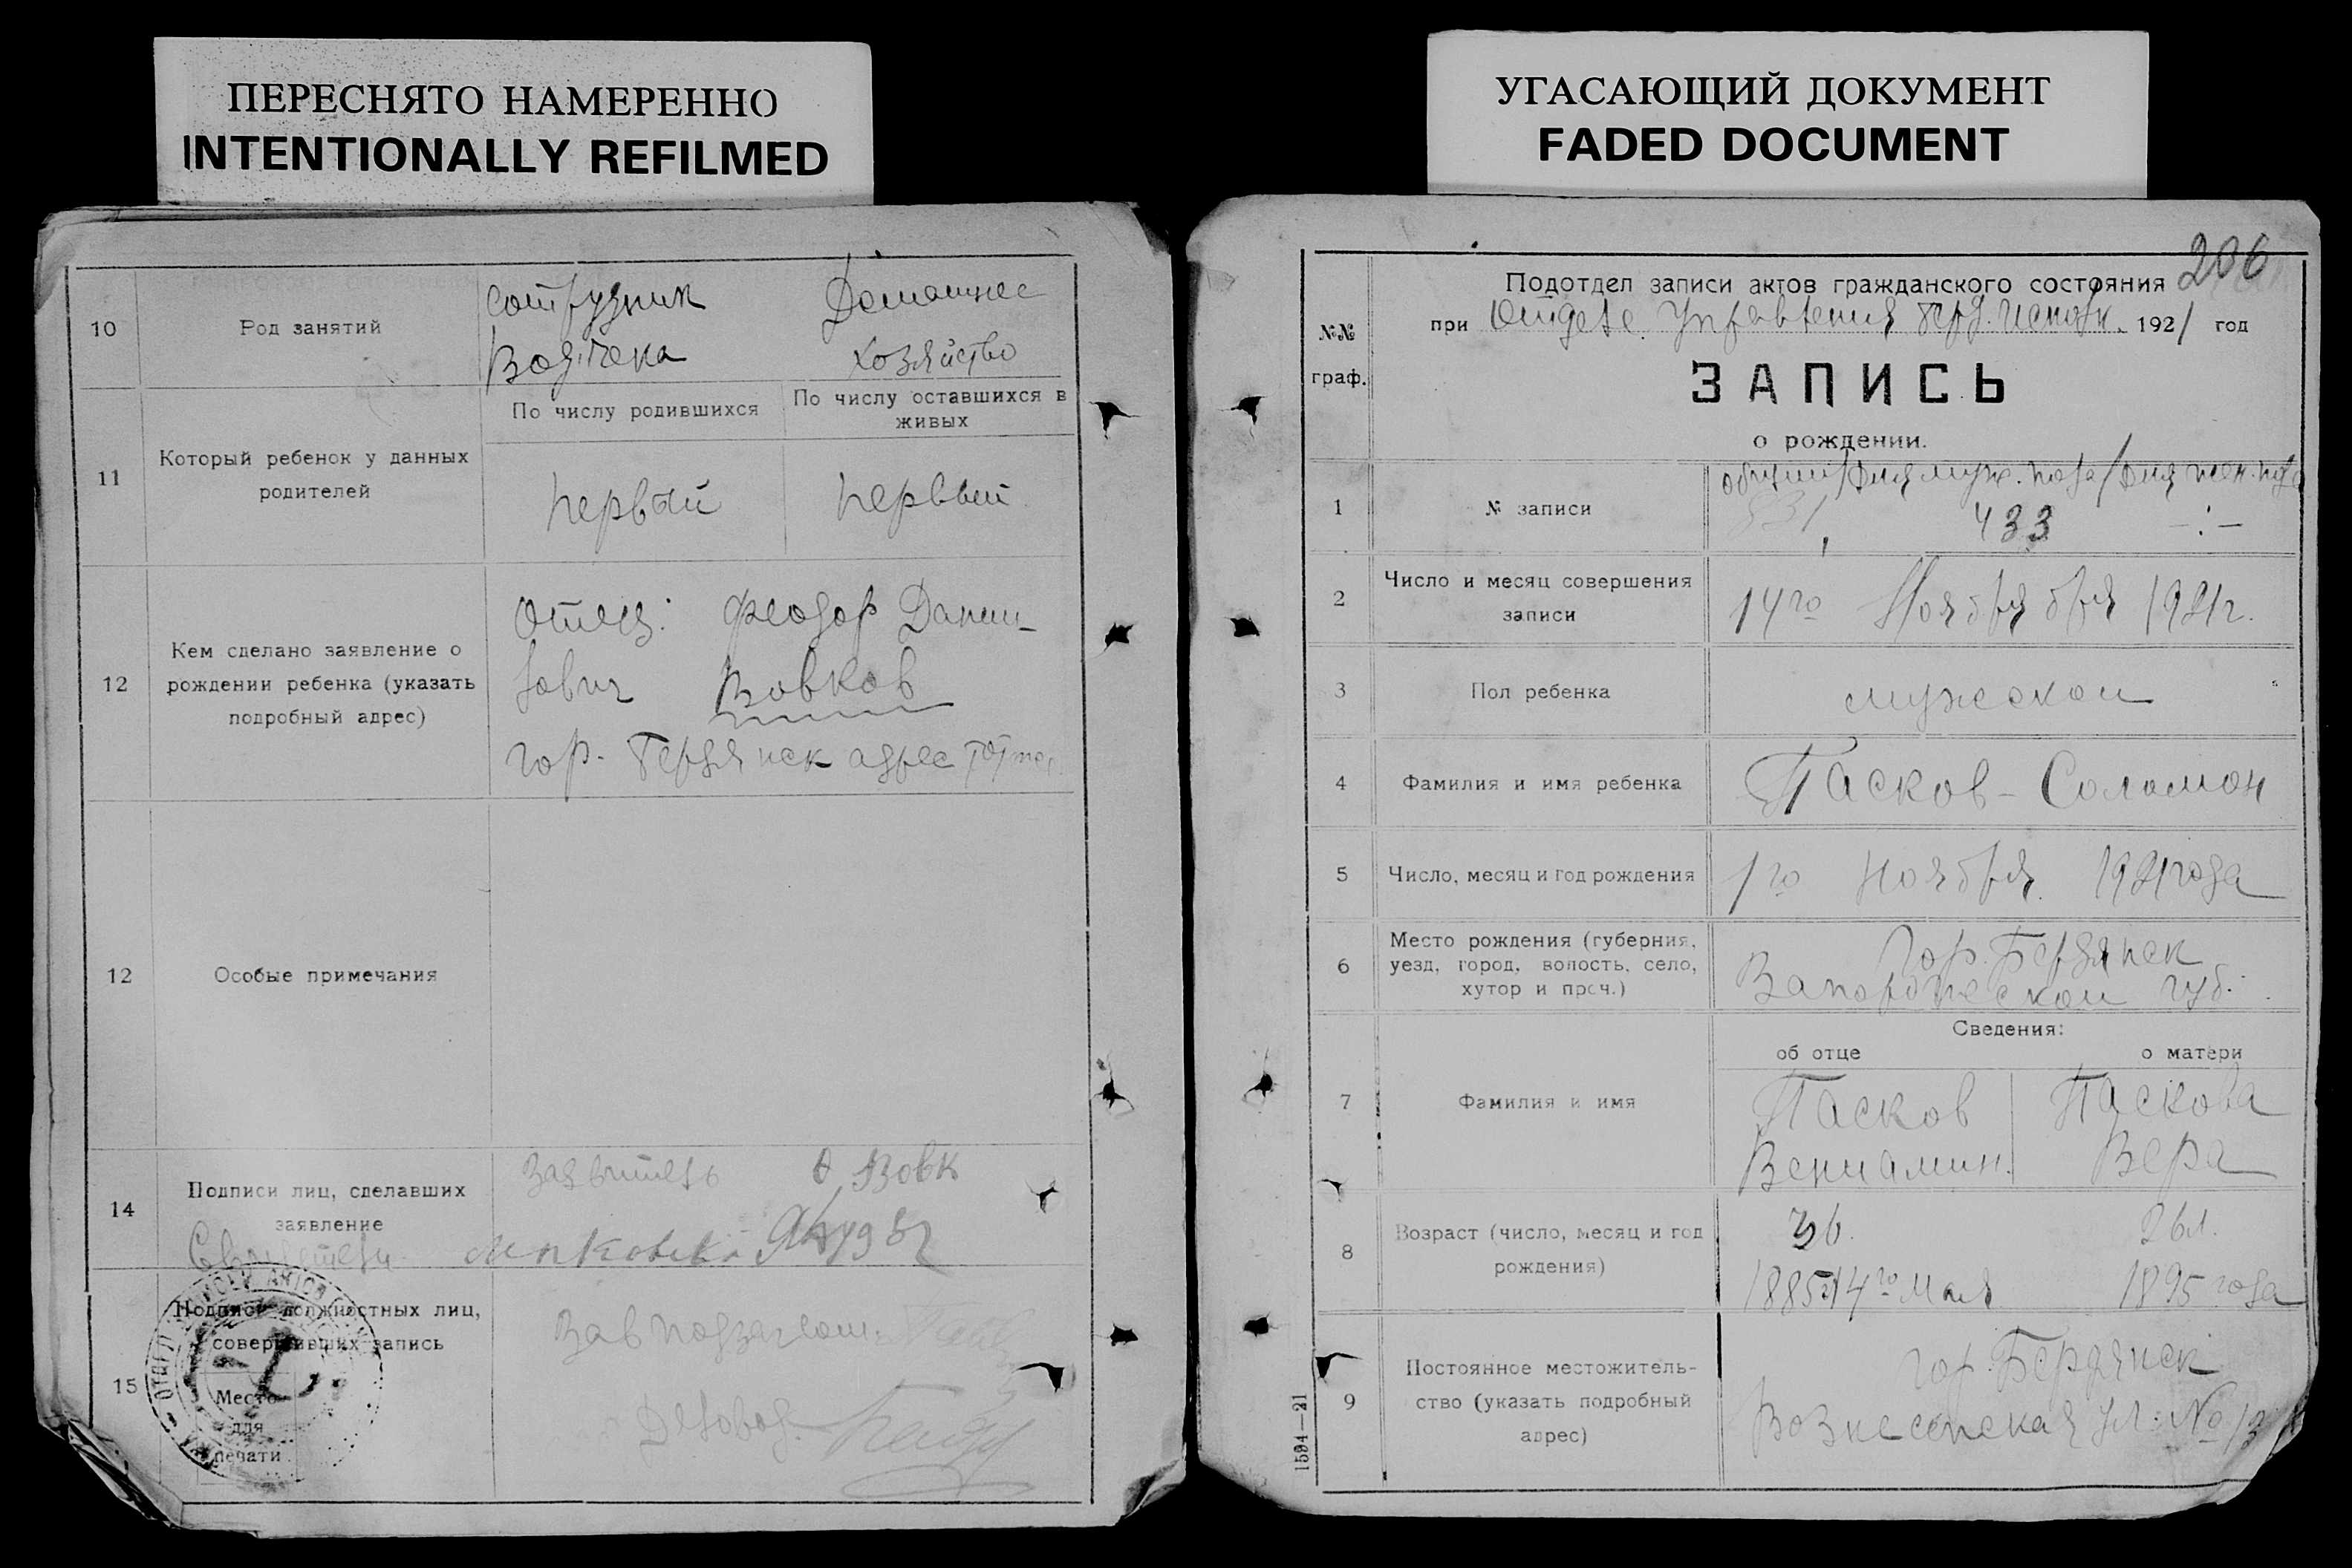 ПЕРЕСНЯТО НАМЕРЕННО
INTENTIONALLY REFILMED
10
Род занятий
сотрудник
Домашнее
хозяйство
11
Который ребенок у данных
родителей
По числу родившихся
По числу оставшихся в
живых
первый
первый
12
Кем сделано заявление о
рождении ребенка (указать
подробный адрес)
Отец: Феодор Дани-
лович Вовков
гор. Бердянск адрес тот же
12
Особые примечания
14
Подписи лиц, сделавших
заявление
Заявитель Ф Вовк
Свидетели
15
Подписи должностных лиц,
совершивших запись
Место
для
печати
Зав подзагсом
Деловод.
УГАСАЮЩИЙ ДОКУМЕНТ
FADED DOCUMENT
206
№№
граф.
Подотдел записи актов гражданского состояния
при Отделе Управления Берд. Исполк. 1921 год
ЗАПИСЬ
о рождении.
1
№ записи
общий/для муж. пола/для жен. пола
531, 433 -:-
2
Число и месяц совершения
записи
14го Ноября 1921г.
3
Пол ребенка
мужской
4
Фамилия и имя ребенка
Пасков - Соломон
5
Число, месяц и год рождения
1го Ноября 1921 года
6
Место рождения (губерния,
уезд, город, волость, село,
хутор и проч.)
Гор. Бердянск
Запорожеской губ.
Сведения:
об отце
о матери
7
Фамилия и имя
Пасков
Вениамин.
Паскова
Вера
8
Возраст (число, месяц и год
рождения)
36.
1885 14го Мая
26л.
1895 года
9
Постоянное местожитель-
ство (указать подробный
адрес)
гор. Бердянск
Вознесенская ул. № 13
1594—21